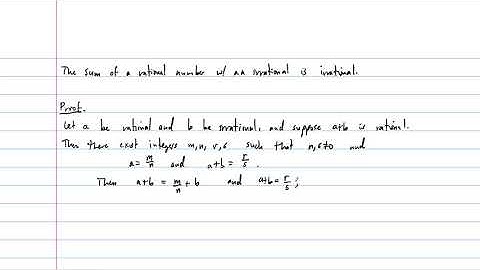 The sum of a rational number w/ an irrational is irrational.
Proof.
Let a be rational and b be irrational, and suppose a+b is rational.
Then there exist integers m, n, r, s such that n, s ≠ 0 and
a = m/n and a+b = r/s.
Then a+b = m/n + b and a+b = r/s;